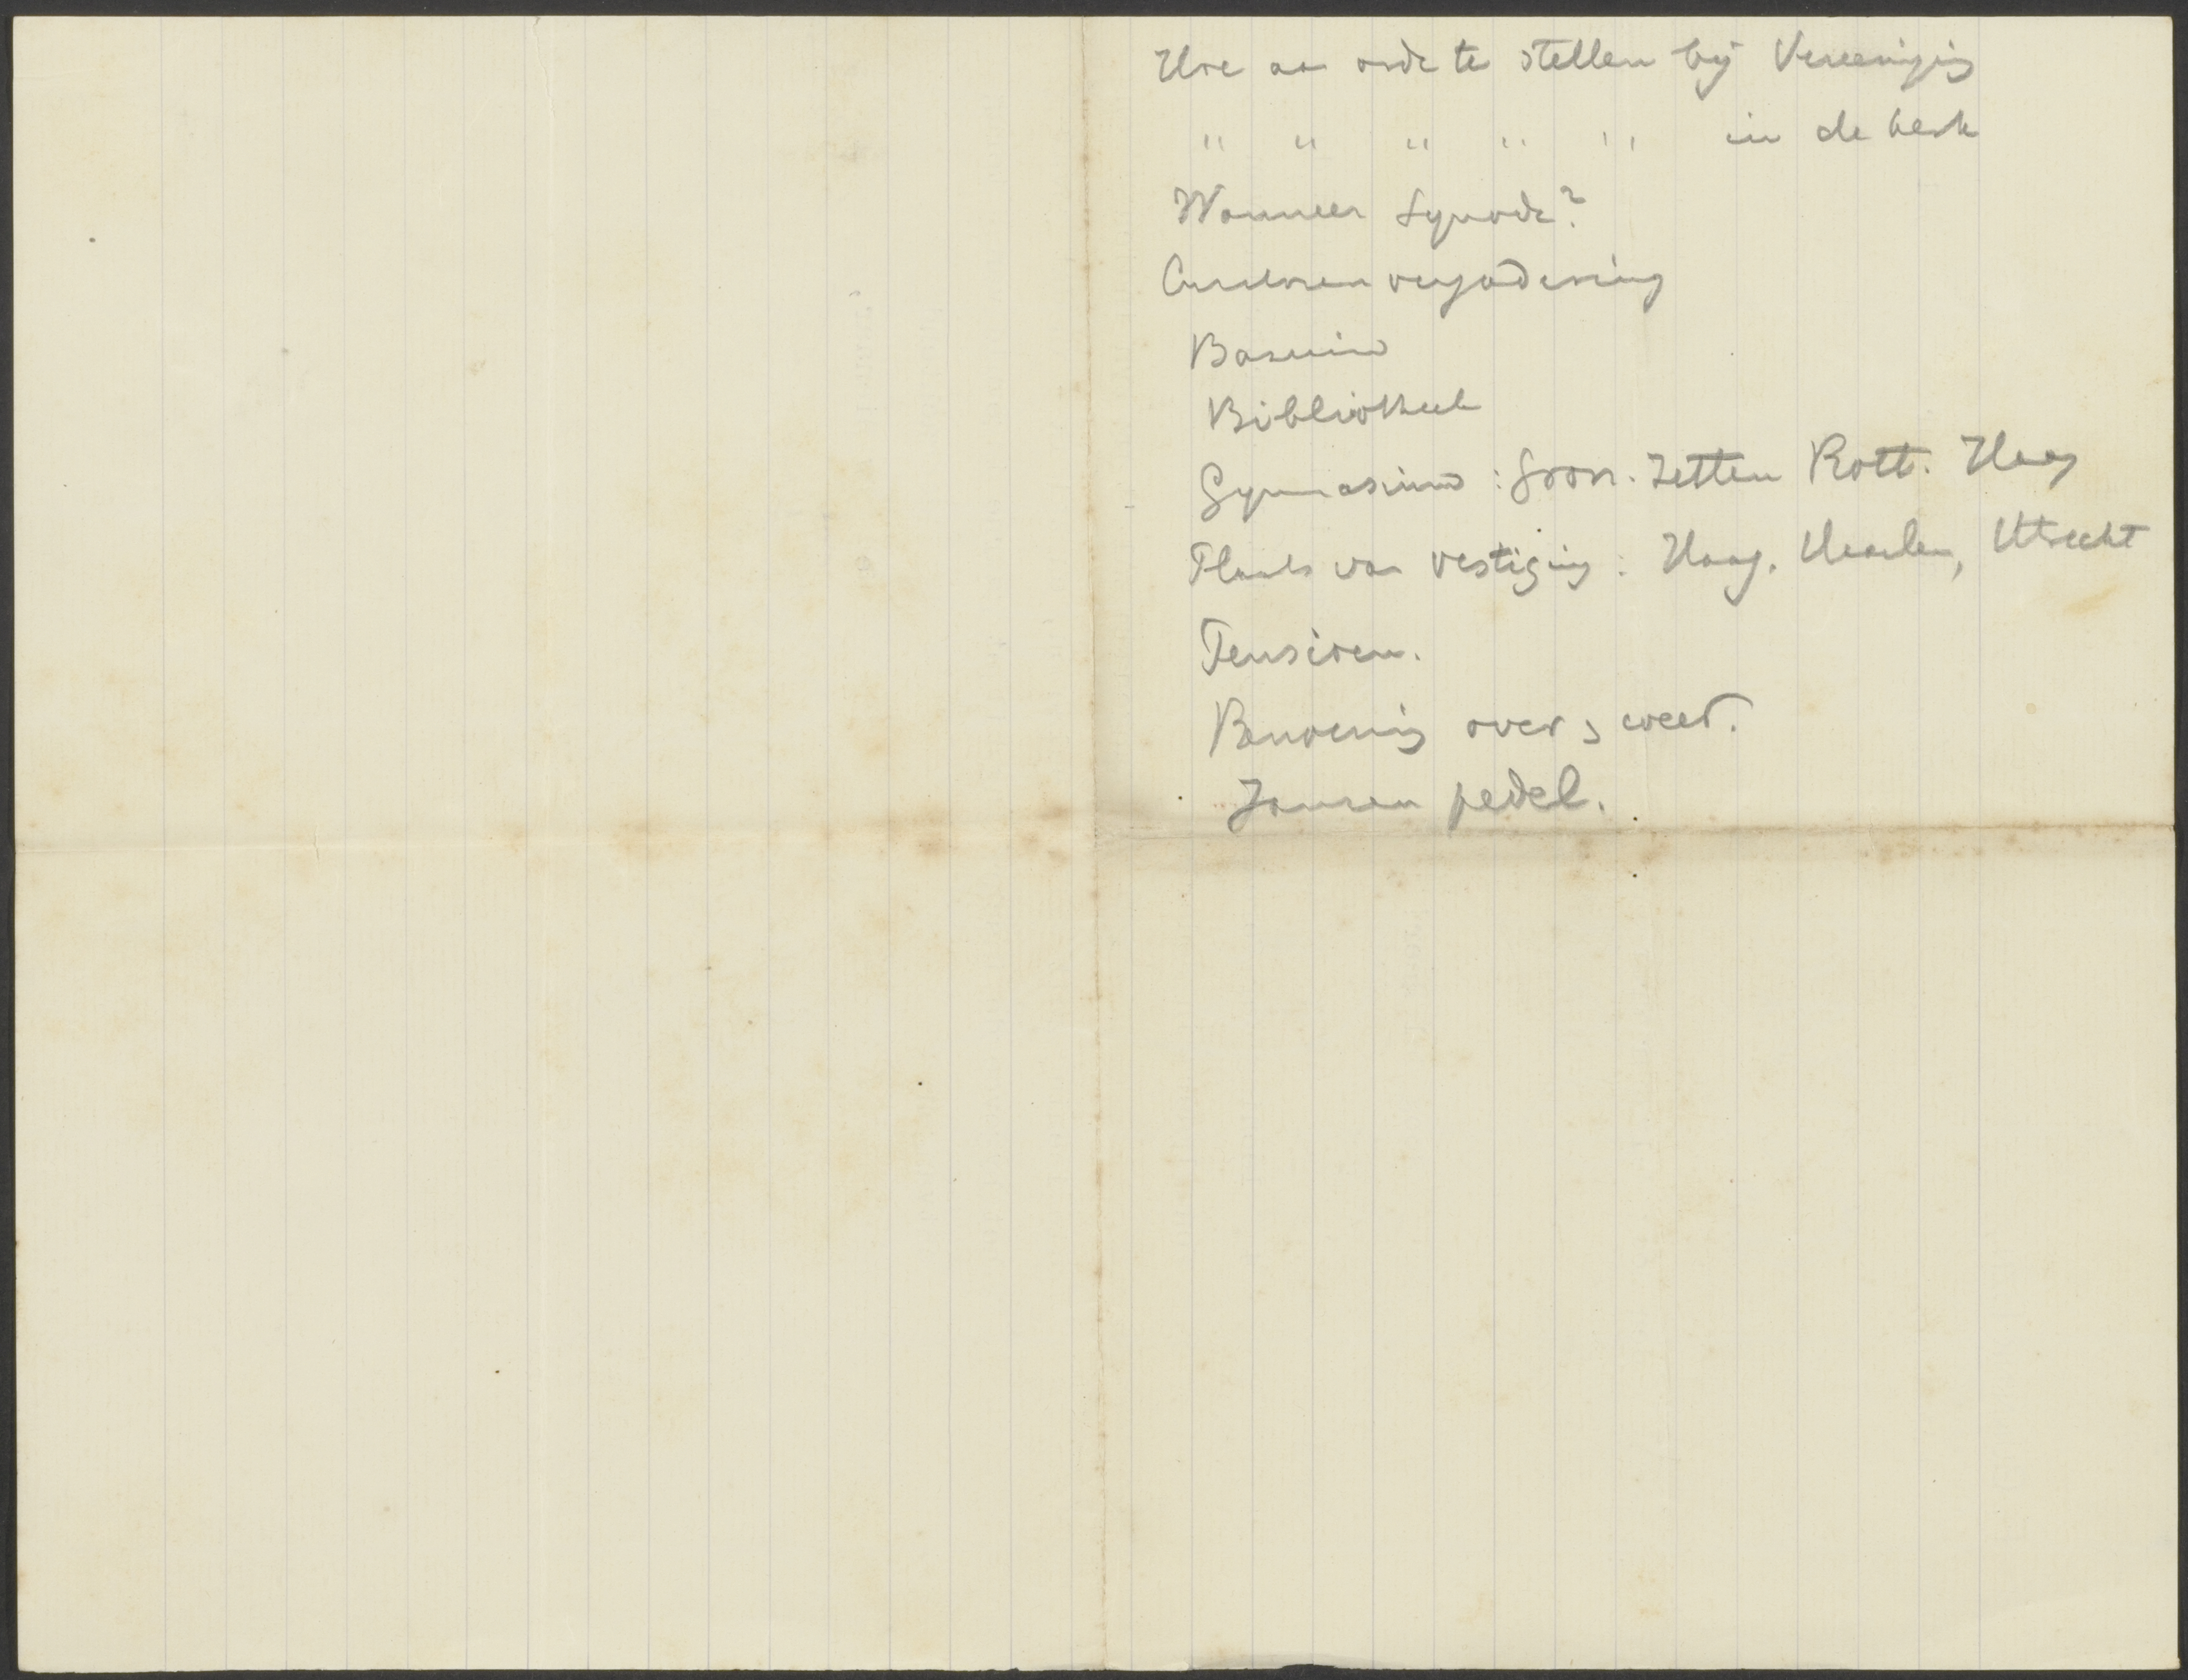 Hoe aan orde te stellen bij Vereeniging
" " " " " in de kerk
Wanneer Synode?
Curatorenvergadering
Bavinck
Bibliotheek
Gymnasium: Gron. Zetten Rott. Haag
Plaats van vestiging: Haag, Haarlem, Utrecht
Pensioen.
over
Jansen pedel.